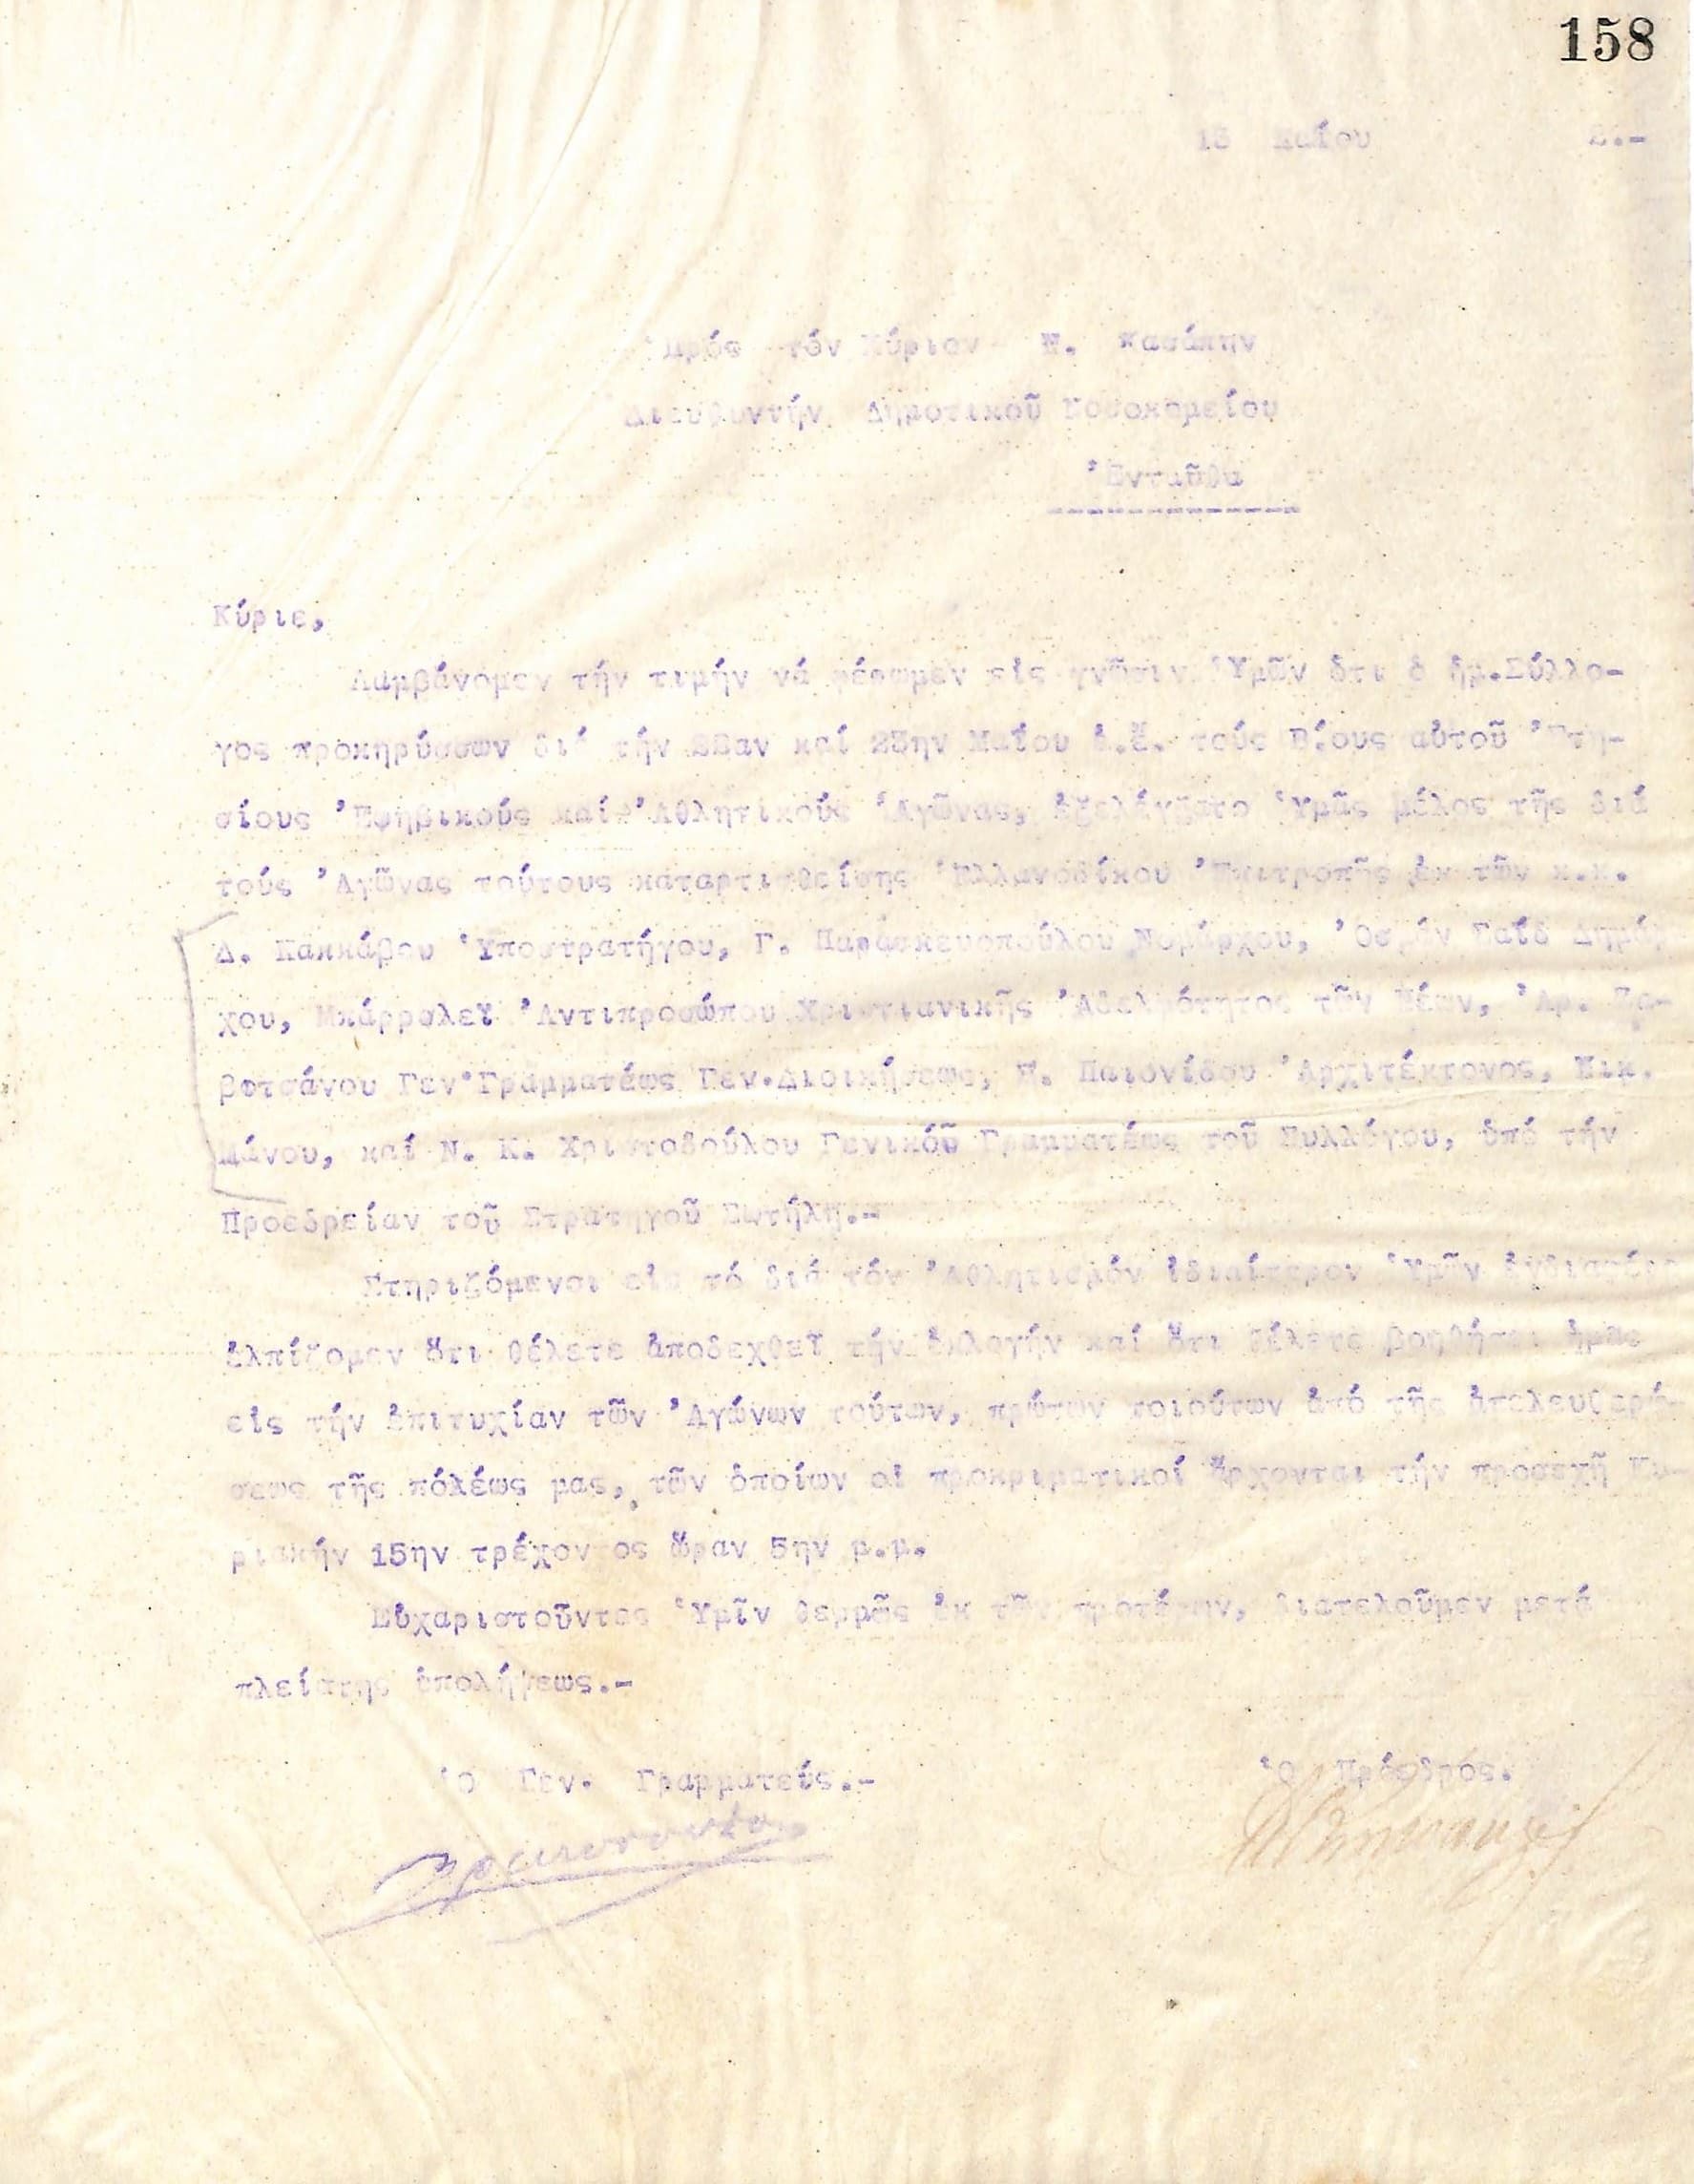 158
Μαΐου 2.-
Πρός τόν Κύριον Ν. Κασάπην
Διευθυντήν Δημοτικοῦ Νοσοκομείου
'Ενταῦθα
Κύριε,
Λαμβάνομεν τήν τιμήν νά φέρωμεν εἰς γνῶσιν 'Υμῶν ὅτι ὁ ἡμ.Σύλλο-
γος προκηρύσσων διά τήν 22αν καί 23ην Μαΐου ἐ.ἔ. τούς Β΄.ους αὐτοῦ 'Ετη-
σίους 'Εφηβικούς καί 'Αθλητικούς 'Αγῶνας, ἐξελέγξατο 'Υμᾶς μέλος τῆς διά
τούς 'Αγῶνας τούτους καταρτισθείσης 'Ελλανοδίκου 'Επιτροπῆς ἐκ τῶν κ.κ.
Δ. Κακκάβου 'Υποστρατήγου, Γ. Παρασκευοπούλου Νομάρχου, 'Οσμάν Σαΐδ Δημάρ
χου, Μπάρρσλεϋ 'Αντιπροσώπου Χριστιανικῆς 'Αδελφότητος τῶν Νέων, 'Αρ.
Γεν.Γραμματέως Γεν.Διοικήσεως, Παιονίδου 'Αρχιτέκτονος, Νικ.
Μάνου, καί Ν. Κ. Χριστοδούλου Γενικοῦ Γραμματέως τοῦ Συλλόγου, ὑπό τήν
Προεδρείαν τοῦ Στρατηγοῦ Σωτήλη.-
Στηριζόμενοι εἰς τό διά τόν 'Αθλητισμόν ἰδιαίτερον 'Υμῶν ἐνδιαφέρο
ἐλπίζομεν ὅτι θέλετε ἀποδεχθεῖ τήν ἐκλογήν καί ὅτι θέλετε βοηθήσει ἡμᾶς
εἰς τήν ἐπιτυχίαν τῶν 'Αγώνων τούτων, πρώτων τοιούτων ἀπό τῆς ἀπελευθερώ-
σεως τῆς πόλέως μας, τῶν ὁποίων οἱ προκριματικοί ἄρχονται τήν προσεχῆ Κυ-
ριακήν 15ην τρέχοντος ὥραν 5ην μ.μ.
Εὐχαριστοῦντες 'Υμῖν θερμῶς ἐκ τῶν προτέρων, διατελοῦμεν μετά
πλείστης ὑπολήψεως.-
'Ο Γεν. Γραμματεύς.- 'Ο Πρόεδρος.